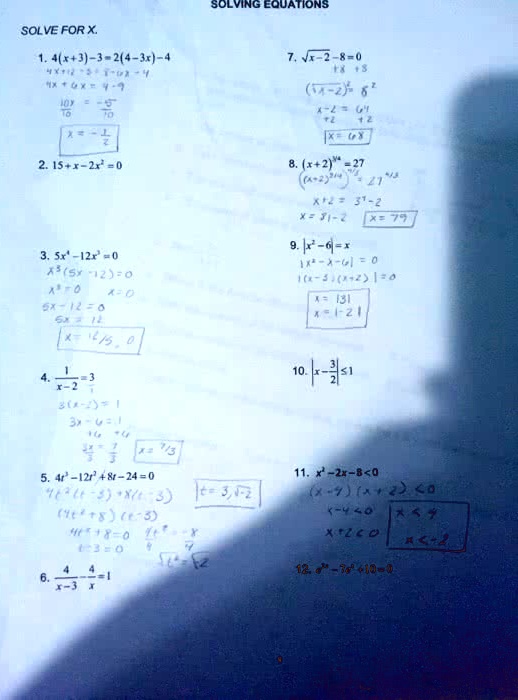 SOLVING EQUATIONS
SOLVE FOR X.
1. 4(x+3)-3=2(4-3x)-4
4x+12-3=8-6x-4
4x+6x=4-9
10x = -5
10 10
x = -1/2
2. 15+x-2x²=0
3. 5x⁴-12x³=0
x³(5x-12)=0
x³=0 x=0
5x-12=0
5x=12
x= 12/5, 0
4. 1/(x-2)=3
3(x-2)=1
3x-6=1
+6 +6
3x/3 = 7/3
x=7/3
5. 4t³-12t²+8t-24=0
4t²(t-3)+8(t-3)
(4t²+8)(t-3)
4t²+8=0 4t²/4=-8/4
t-3=0
t=3,√-2
6. 4/(x-3)-4/x=1
7. √x-2-8=0
+8 +8
(√x-2)²=8²
x-2=64
+2 +2
x=68
8. (x+2)^3/4=27
((x+2)^3/4)^4/3=27^4/3
x+2=3⁴-2
x=81-2
x=79
9. |x²-6|=x
|x²-x-6|=0
|(x-3)(x+2)|=0
x=|3|
x=|-2|
10. |x-3/2|≤1
11. x²-2x-8<0
(x-4)(x+2)<0
x-4<0
x<4
x+2<0
x<-2
12.